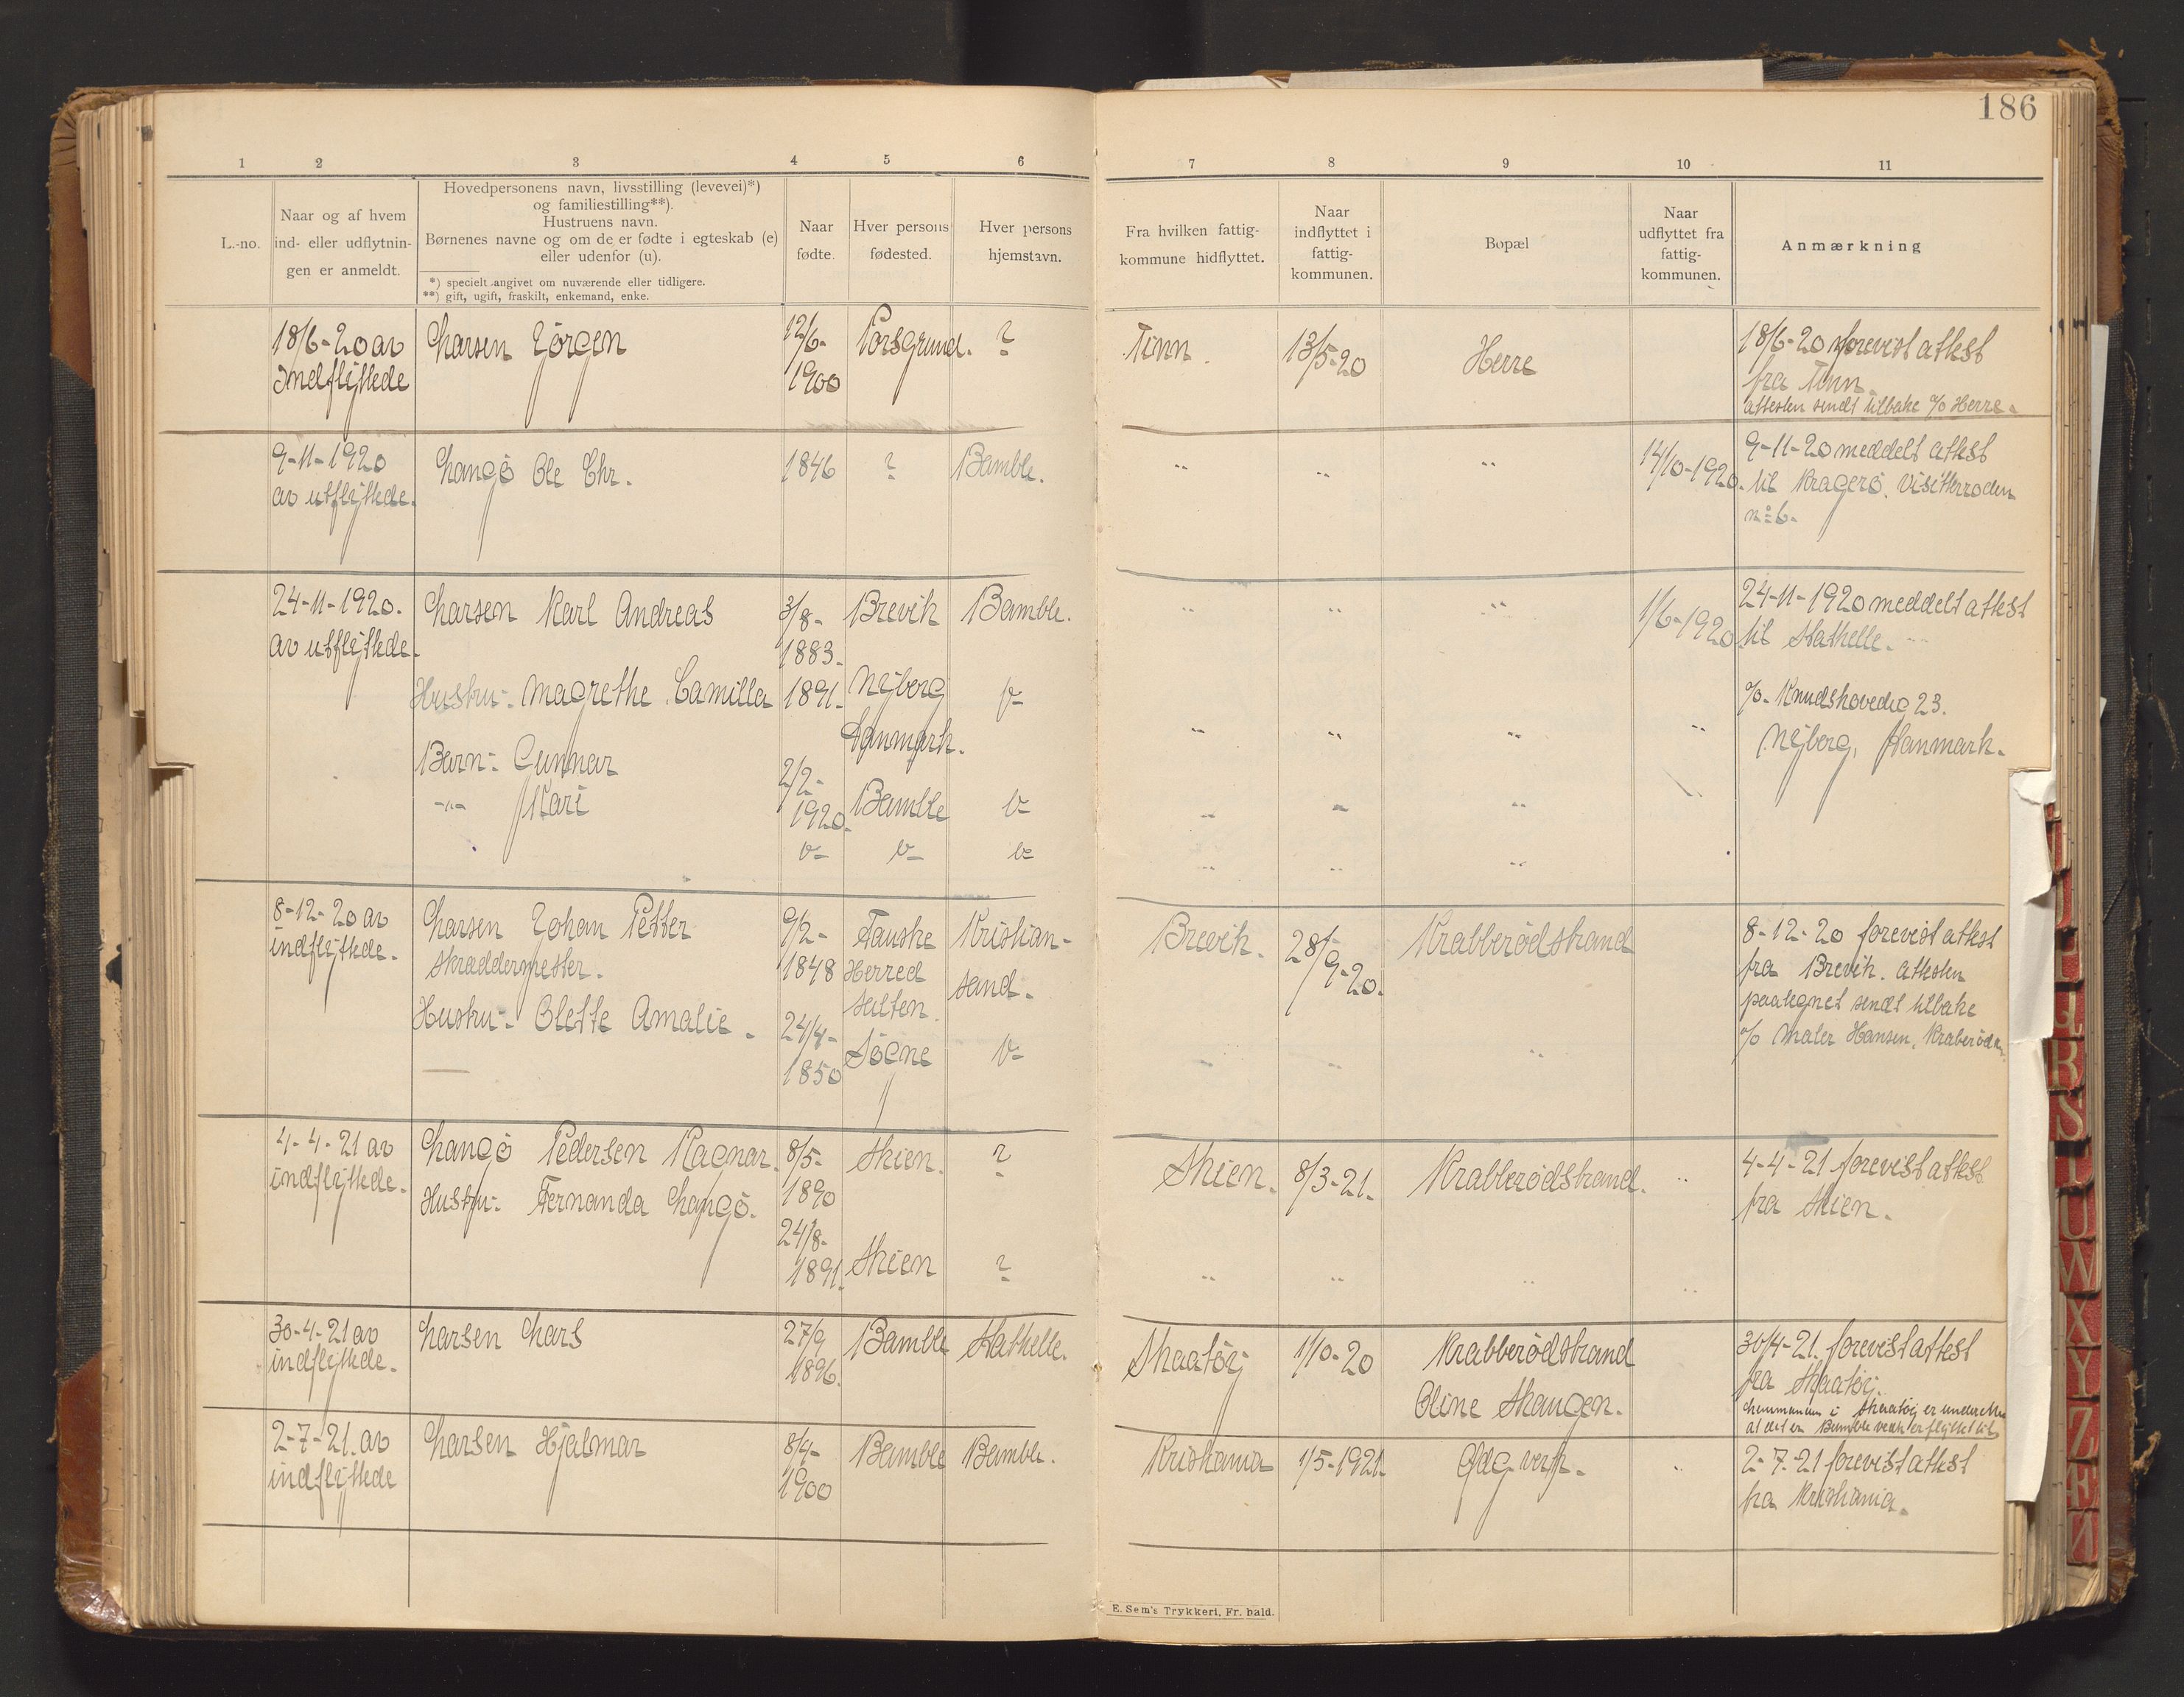 186
1 2 3 4 5 6 7 8 9 10 11
L.-no.
Naar og af hvem
ind- eller udflytnin-
gen er anmeldt.
Hovedpersonens navn, livsstilling (levevei)*)
og familiestilling**).
Hustruens navn.
Børnenes navne og om de er fødte i egteskab (e)
eller udenfor (u).
*) specielt angivet om nuværende eller tidligere.
**) gift, ugift, fraskilt, enkemand, enke.
Naar
fødte.
Hver persons
fødested.
Hver persons
hjemstavn.
Fra hvilken fattig-
kommune hidflyttet.
Naar
indflyttet i
fattig-
kommunen.
Bopæl
Naar
udflyttet fra
fattig-
kommunen.
Anmærkning
18/6-20 av
Indflyttede
Larsen Jörgen
12/6-
1900
Porsgrund.
?
Tinn.
13/5-20
Herre
18/6-20 forevist attest
fra Tinn.
attesten sendt tilbake c/o Herre.
9-11-1920
av utflyttede.
Langö Ole Chr.
1846
?
Bamble.
"
"
"
14/10-1920.
9-11-20 meddelt attest
til Kragerö. Visitterroden
no 6.
24-11-1920.
av utflyttede.
Larsen Karl Andreas
3/8-
1883.
Brevik
Bamble.
"
"
"
1/6-1920.
24-11-1920 meddelt attest
til Stathelle.
Hustru:- Magrethe Camilla
1891.
Nyborg
Danmark.
"
"
"
"
c/o. Knudshovedvg 23.
Nyborg, Danmark.
Barn:- Gunnar
-"- Kari
2/2-
1920.
Bamble
"
"
"
"
"
"
8-12-20 av
indflyttede.
Larsen Johan Petter
skræddermester.
9/2-
1848
Fauske
Herred
Salten.
Kristian-
sand.
Brevik.
28/
9-20.
Krabberødstrand
8-12-20 forevist attest
fra Brevik. attesten
paategnet sendt tilbake
c/o Maler Hansen,
Hustru:- Olette Amalie.
24/4-
1850
Søgne
"
"
"
4-4-21 av
indflyttede.
Langö Pedersen Ragnar.
8/5-
1890
Skien.
?
Skien.
8/3-21.
Krabberødstrand.
"
4-4-21 forevist attest
fra Skien.
Hustru:- Fernanda Langö.
24/8-
1891.
Skien
?
"
"
"
"
30-4-21 av
indflyttede.
Larsen Lars
27/9
1896.
Bamble
Stathelle.
Skaatöy
1/10-20
Krabberødstrand
Oline Skaugen.
30/4-21. forevist attest
fra Skaatöy.
i Skaatöy er underettet
at det er Bamble
2-7-21. av
indflyttede
Larsen Hjalmar
8/4-
1900
Bamble
Bamble.
Kristiania
1/5-1921.
"
2-7-21 forevist attest
fra Kristiania.
E. Sem's Trykkeri, Fr. hald.
R
S
T
U
W
X
Y
Z
Æ
Ø